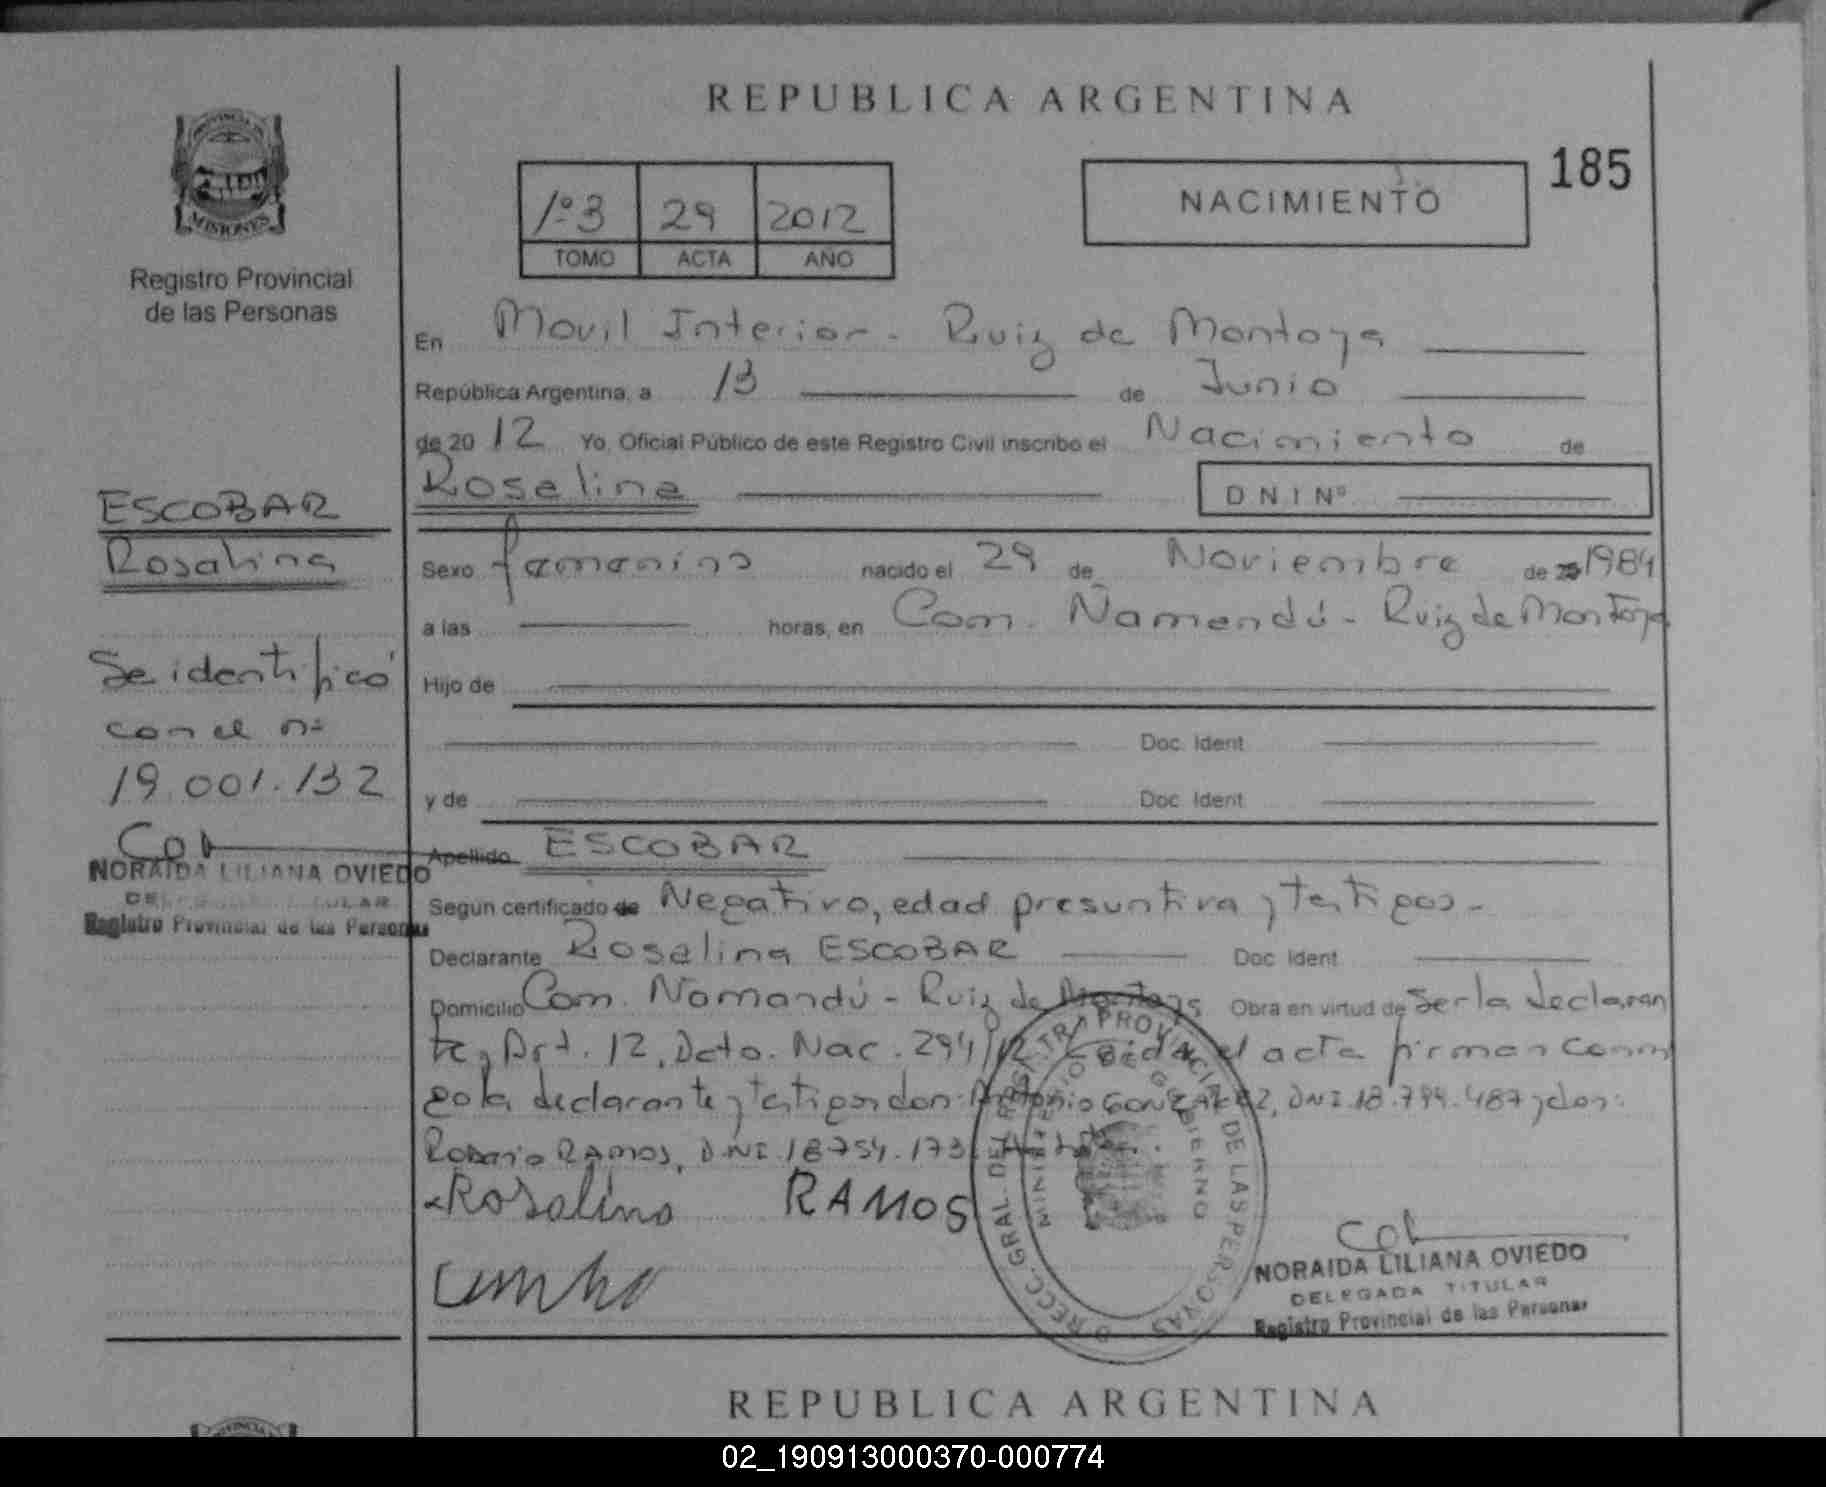 REPUBLICA ARGENTINA
185
PROVINCIA DE
MISIONES
Registro Provincial
de las Personas
1º3 29 2012
TOMO ACTA AÑO
NACIMIENTO
En Movil Interior - Ruiz de Montoya
República Argentina, a 13 de Junio
de 20 12 Yo, Oficial Público de este Registro Civil inscribo el Nacimiento de
Rosalina
D N I Nº
ESCOBAR
Rosalina
Se identificó
con el nº
19.001.132
NORAIDA LILIANA OVIEDO
DELEGADA TITULAR
Registro Provincial de las Personas
Sexo femenino nacido el 29 de Noviembre de 1984
a las horas, en Com. Ñamandú - Ruiz de Montoya
Hijo de
Doc. Ident
y de Doc. Ident
Apellido ESCOBAR
Segun certificado de Negativo, edad presuntiva y testigos -
Declarante Rosalina ESCOBAR Doc. Ident
Domicilio Com. Ñamandú - Ruiz de Montoya Obra en virtud de Ser la declaran
te, Art. 12, Dcto. Nac. 294/12 Leida el acta firman conmi
go la declarante y testigos don: Antonio GONZALEZ, DNI 18.794.487 y don:
Rosario RAMOS, DNI 18754.173
Rosalino RAMOS
NORAIDA LILIANA OVIEDO
DELEGADA TITULAR
Registro Provincial de las Personas
DIRECC. GRAL. DEL REGISTRO PROVINCIAL DE LAS PERSONAS
MINISTERIO DE GOBIERNO
REPUBLICA ARGENTINA
02_190913000370-000774